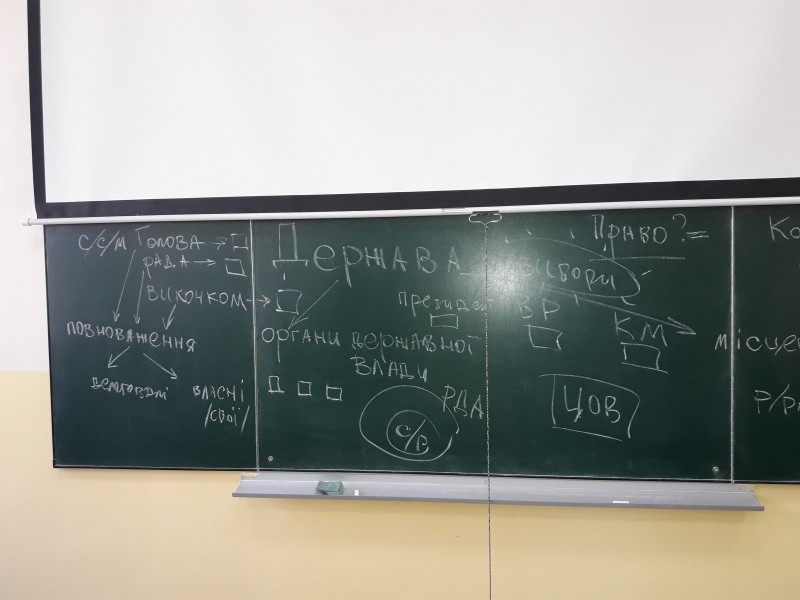 с/с/м Голова
рада
виконком
повноваження
делеговані
власні
/свої/
Держава
вибори
органи державної
влади
президент
ВР
КМ
РДА
с/в
ЦОВ
Право? =
місцев
Р/р
Ко